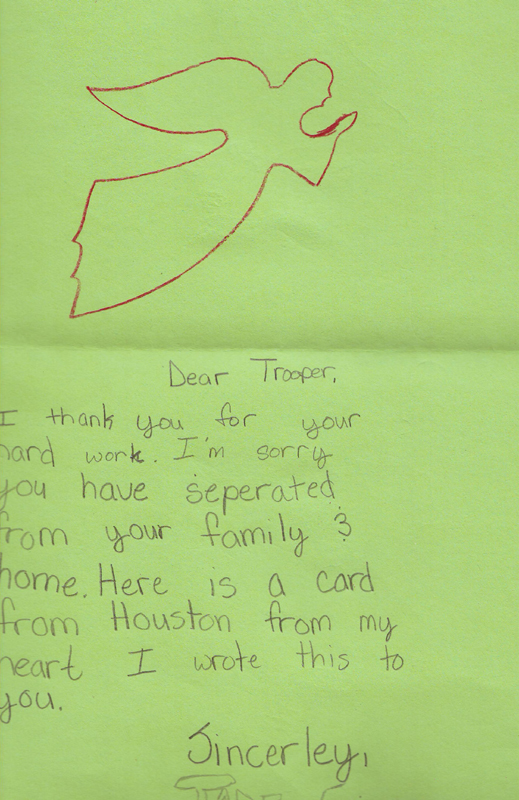 Dear Trooper,
I thank you for your
hard work. I'm sorry
you have seperated
from your family &
home. Here is a card
from Houston from my
heart I wrote this to
you.
Sincerley,